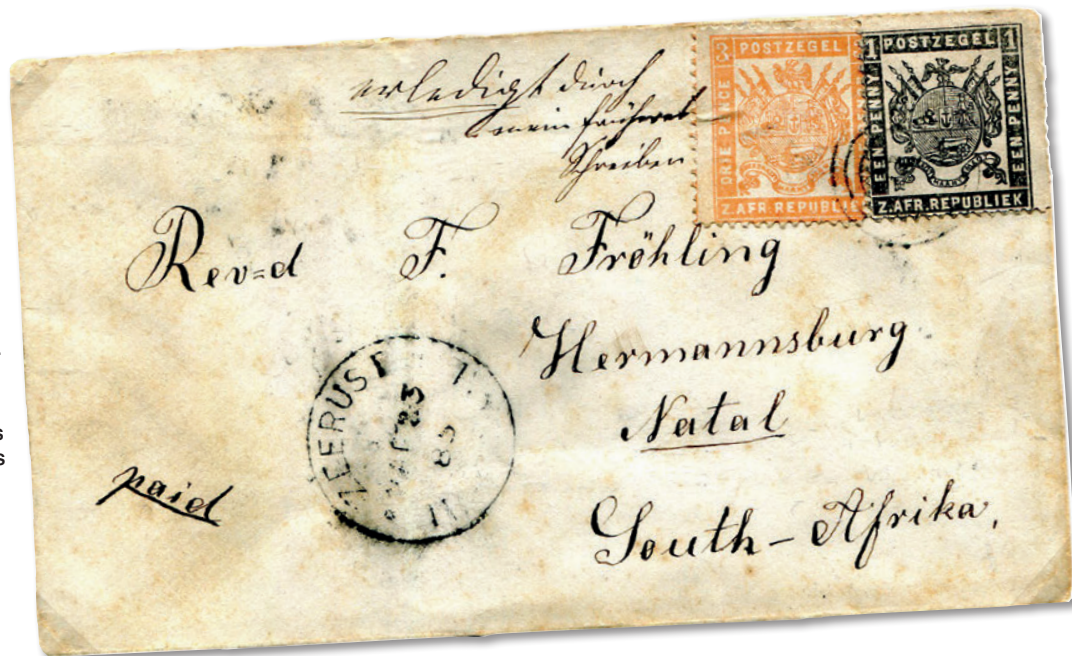 erledigt durch
mein früheres
Schreiben
3 POSTZEGEL
DRIE PENCE
Z. AFR. REPUBLIEK
1 POSTZEGEL 1
EEN PENNY
EEN PENNY
Z. AFR. REPUBLIEK
Rev=d F. Fröhling
Hermannsburg
Natal
South-Afrika,
ZEERUST
23
85
paid
s
s